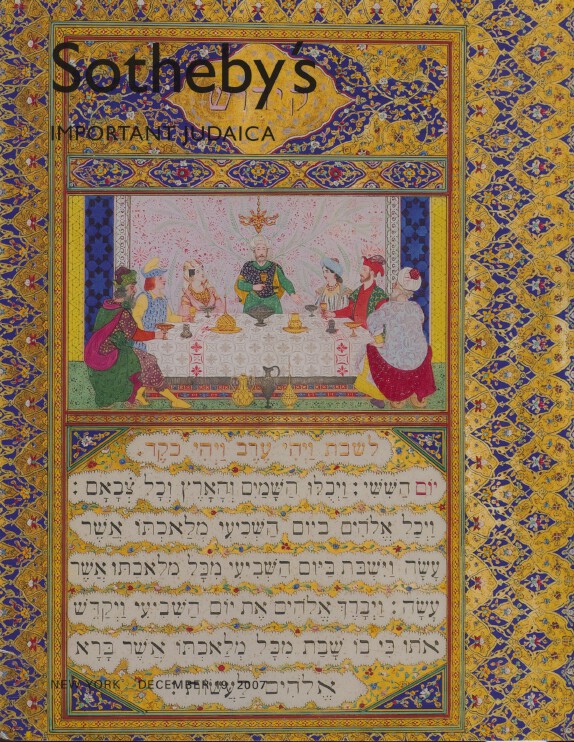 Sotheby's
קידוש
IMPORTANT JUDAICA
לשבת וַיְהִי עֶרֶב וַיְהִי בֹקֶר
יוֹם הַשִּׁשִּׁי : וַיְכֻלּוּ הַשָּׁמַיִם וְהָאָרֶץ וְכָל צְבָאָם :
וַיְכַל אֱלֹהִים בַּיּוֹם הַשְּׁבִיעִי מְלַאכְתּוֹ אֲשֶׁר
עָשָׂה וַיִּשְׁבֹּת בַּיּוֹם הַשְּׁבִיעִי מִכָּל מְלַאכְתּוֹ אֲשֶׁר
עָשָׂה : וַיְבָרֶךְ אֱלֹהִים אֶת יוֹם הַשְּׁבִיעִי וַיְקַדֵּשׁ
אֹתוֹ כִּי בוֹ שָׁבַת מִכָּל מְלַאכְתּוֹ אֲשֶׁר בָּרָא
אֱלֹהִים לַעֲשׂוֹת :
NEW YORK DECEMBER 19, 2007